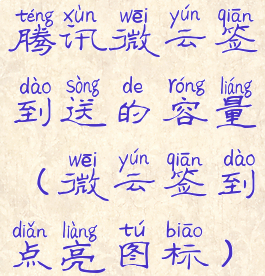 téng xùn wēi yún qiān
腾讯微云签
dào sòng de róng liáng
到送的容量
wēi yún qiān dào
（微云签到
diǎn liàng tú biāo
点亮图标）